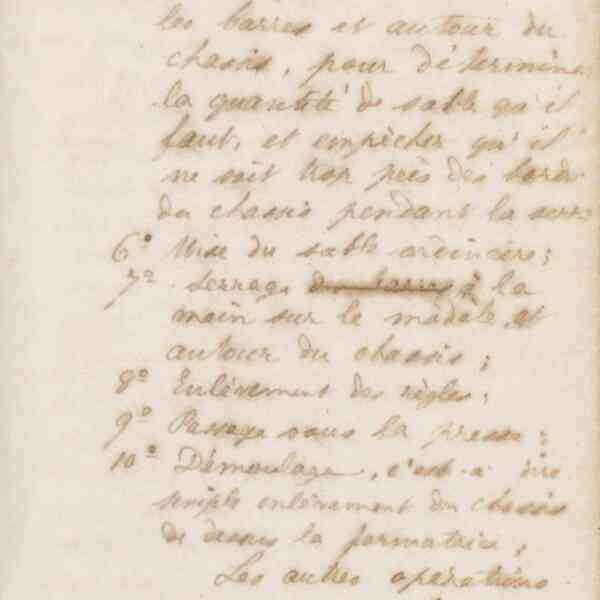 les barres et autour du
chassis, pour détermine
la quantité de sable qu'il
faut, et empêcher qu'il
ne soit trop près des bords
du chassis pendant la serra
6º Mise du sable ordinaire ;
7º Serrage des barres à la
main sur le modèle, et
autour du chassis ;
8º Enlèvement des règles ;
9º Passage sous la presse ;
10º Démoulage, c'est-à dire
simple enlèvement du chassis
de dessus la formatrice ;
Les autres opérations